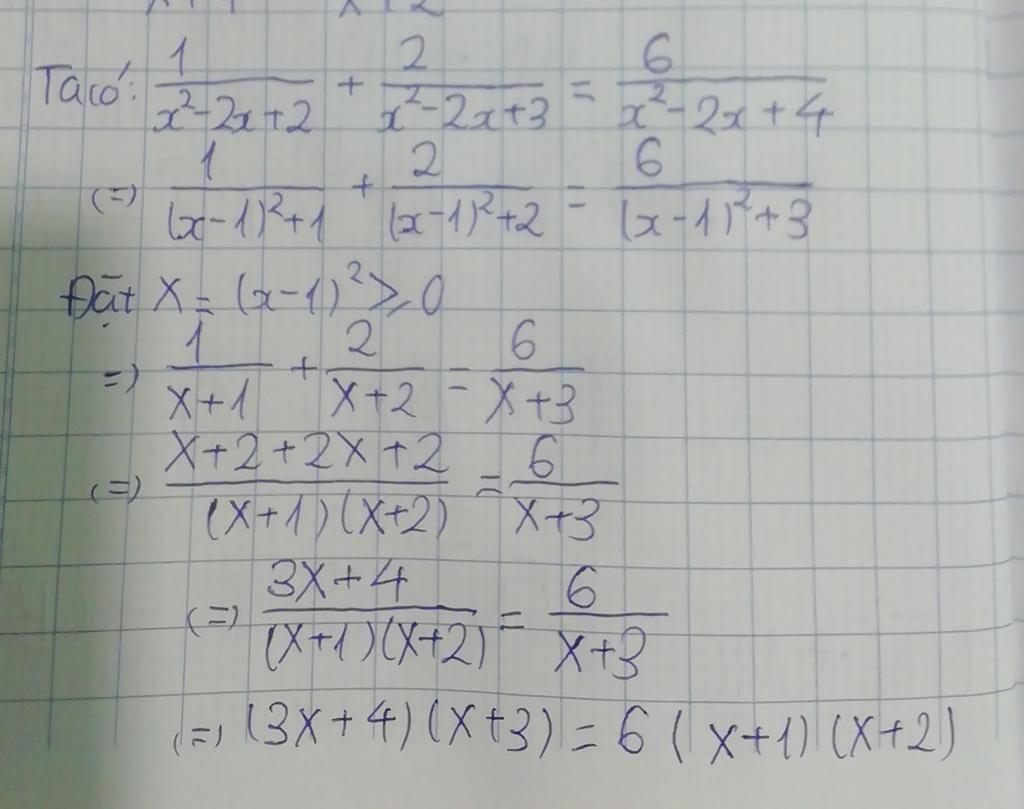 Ta có: 1/(x²-2x+2) + 2/(x²-2x+3) = 6/(x²-2x+4)
(=) 1/((x-1)²+1) + 2/((x-1)²+2) = 6/((x-1)²+3)
Đặt X = (x-1)² ≥ 0
=) 1/(X+1) + 2/(X+2) = 6/(X+3)
(=) (X+2+2X+2)/((X+1)(X+2)) = 6/(X+3)
(=) (3X+4)/((X+1)(X+2)) = 6/(X+3)
(=) (3X+4)(X+3) = 6(X+1)(X+2)